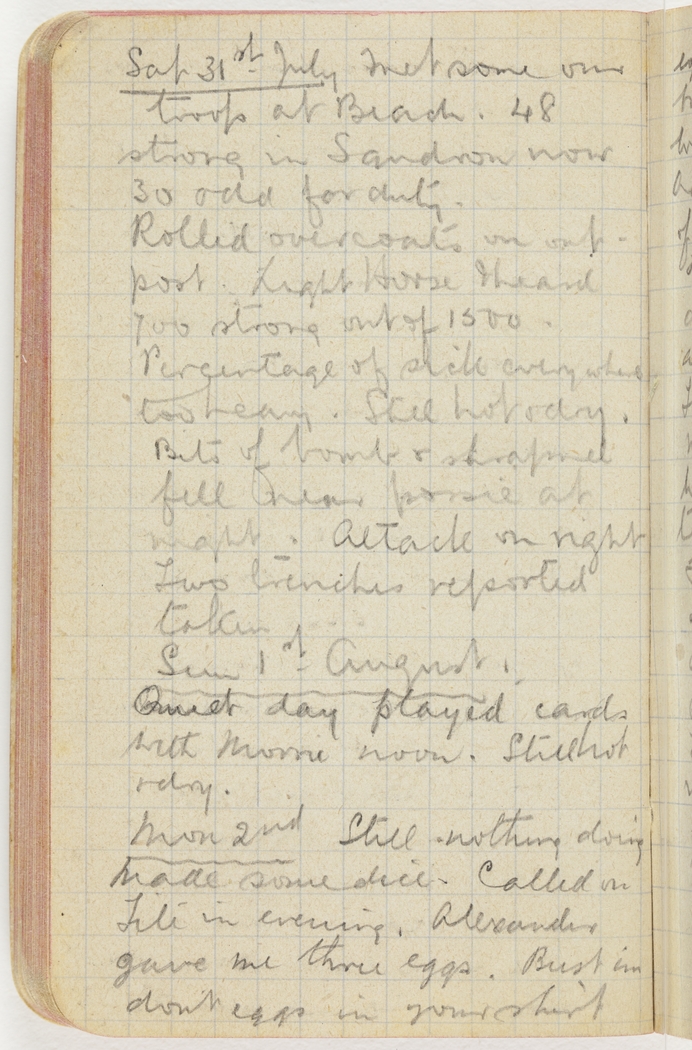 Sat 31st July Met some our
troops at Beach. 48
strong in Sqndron now
30 odd for duty.
Rolled overcoats on out-
post. Light Horse I heard
700 strong out of 1500.
Percentage of sick everywhere
too heavy. Still hot & dry.
Bits of bomb & shrapnel
fell near possie at
night. Attack on right
Two trenches reported
taken
Sun 1st August.
Quiet day played cards
with Morrie noon. Still hot
& dry.
Mon 2nd Still nothing doing
Made some dice. Called on
in evening. Alexander
gave me three eggs. Bust em
dont eggs in your shirt